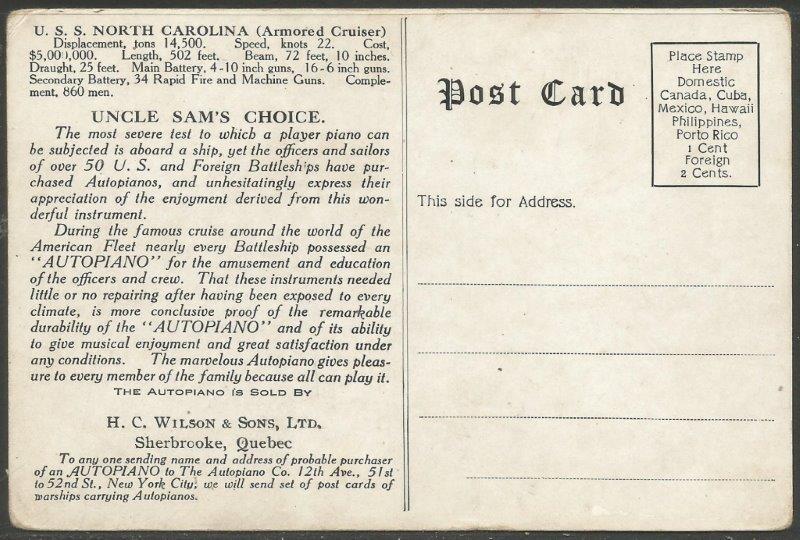 U. S. S. NORTH CAROLINA (Armored Cruiser)
Displacement, tons 14,500. Speed, knots 22. Cost,
$5,000,000. Length, 502 feet. Beam, 72 feet, 10 inches.
Draught, 25 feet. Main Battery, 4-10 inch guns, 16-6 inch guns.
Secondary Battery, 34 Rapid Fire and Machine Guns. Comple-
ment, 860 men.
UNCLE SAM'S CHOICE.
The most severe test to which a player piano can
be subjected is aboard a ship, yet the officers and sailors
of over 50 U. S. and Foreign Battleships have pur-
chased Autopianos, and unhesitatingly express their
appreciation of the enjoyment derived from this won-
derful instrument.
During the famous cruise around the world of the
American Fleet nearly every Battleship possessed an
"AUTOPIANO" for the amusement and education
of the officers and crew. That these instruments needed
little or no repairing after having been exposed to every
climate, is more conclusive proof of the remarkable
durability of the "AUTOPIANO" and of its ability
to give musical enjoyment and great satisfaction under
any conditions. The marvelous Autopiano gives pleas-
ure to every member of the family because all can play it.
THE AUTOPIANO IS SOLD BY
H. C. WILSON & SONS, LTD.
Sherbrooke, Quebec
To any one sending name and address of probable purchaser
of an AUTOPIANO to The Autopiano Co. 12th Ave., 51st
to 52nd St., New York City; we will send set of post cards of
warships carrying Autopianos.
Post Card
Place Stamp
Here
Domestic
Canada, Cuba,
Mexico, Hawaii
Philippines,
Porto Rico
1 Cent
Foreign
2 Cents.
This side for Address.